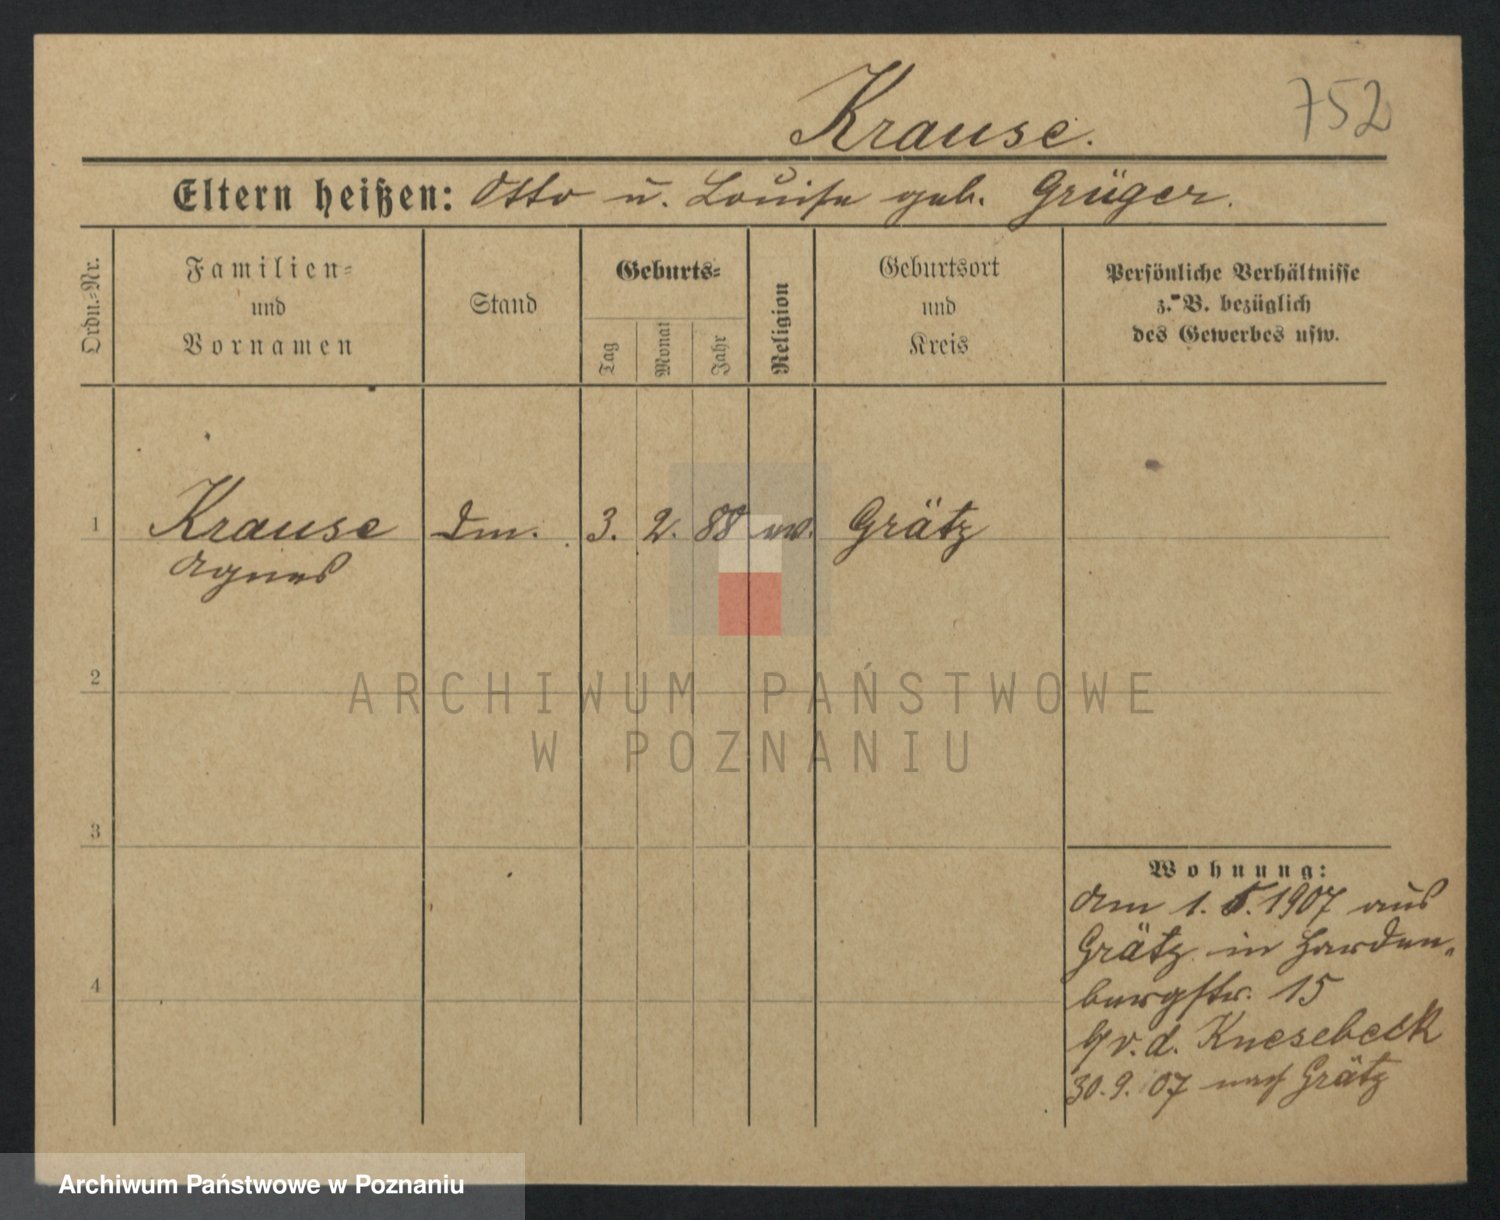 Krause.
752
Eltern heißen: Otto u. Louise geb. Grüger.
Ordn.=Nr.
Familien=
und
Vornamen
Stand
Geburts=
Tag
Monat
Jahr
Religion
Geburtsort
und
Kreis
Persönliche Verhältnisse
z. B. bezüglich
des Gewerbes usw.
1
Krause
Agnes
3. 2. 88 ev. Grätz
2
ARCHIWUM PAŃSTWOWE
W POZNANIU
3
Wohnung:
Am 1. 5. 1907 aus
Grätz in Harden-
burgstr. 15
b/ v. d. Knesebeck
30. 9. 07 nach Grätz
4
Archiwum Państwowe w Poznaniu